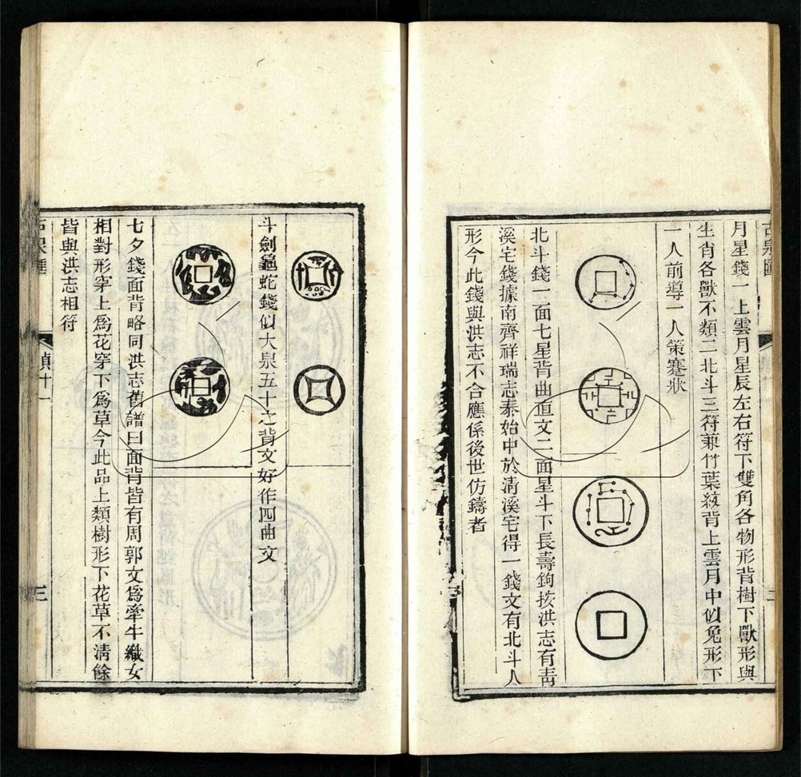 月星錢一上雲月星辰左右符下雙角各物形背樹下獸形與
生肖各獸不類二北斗三符兼竹葉紋背上雲月中似兔形下
一人前導一人策蹇狀
北斗錢一面七星背曲直文二面星斗下長壽鉤按洪志有靑
溪宅錢據南齊祥瑞志泰始中於淸溪宅得一錢文有北斗人
形今此錢與洪志不合應係後世仿鑄者
斗劍龜蛇錢似大泉五十之背文好作四曲文
七夕錢面背略同洪志舊譜曰面背皆有周郭文爲牽牛織女
相對形穿上爲花穿下爲草今此品上類樹形下花草不淸餘
皆與洪志相符
貞十一
三